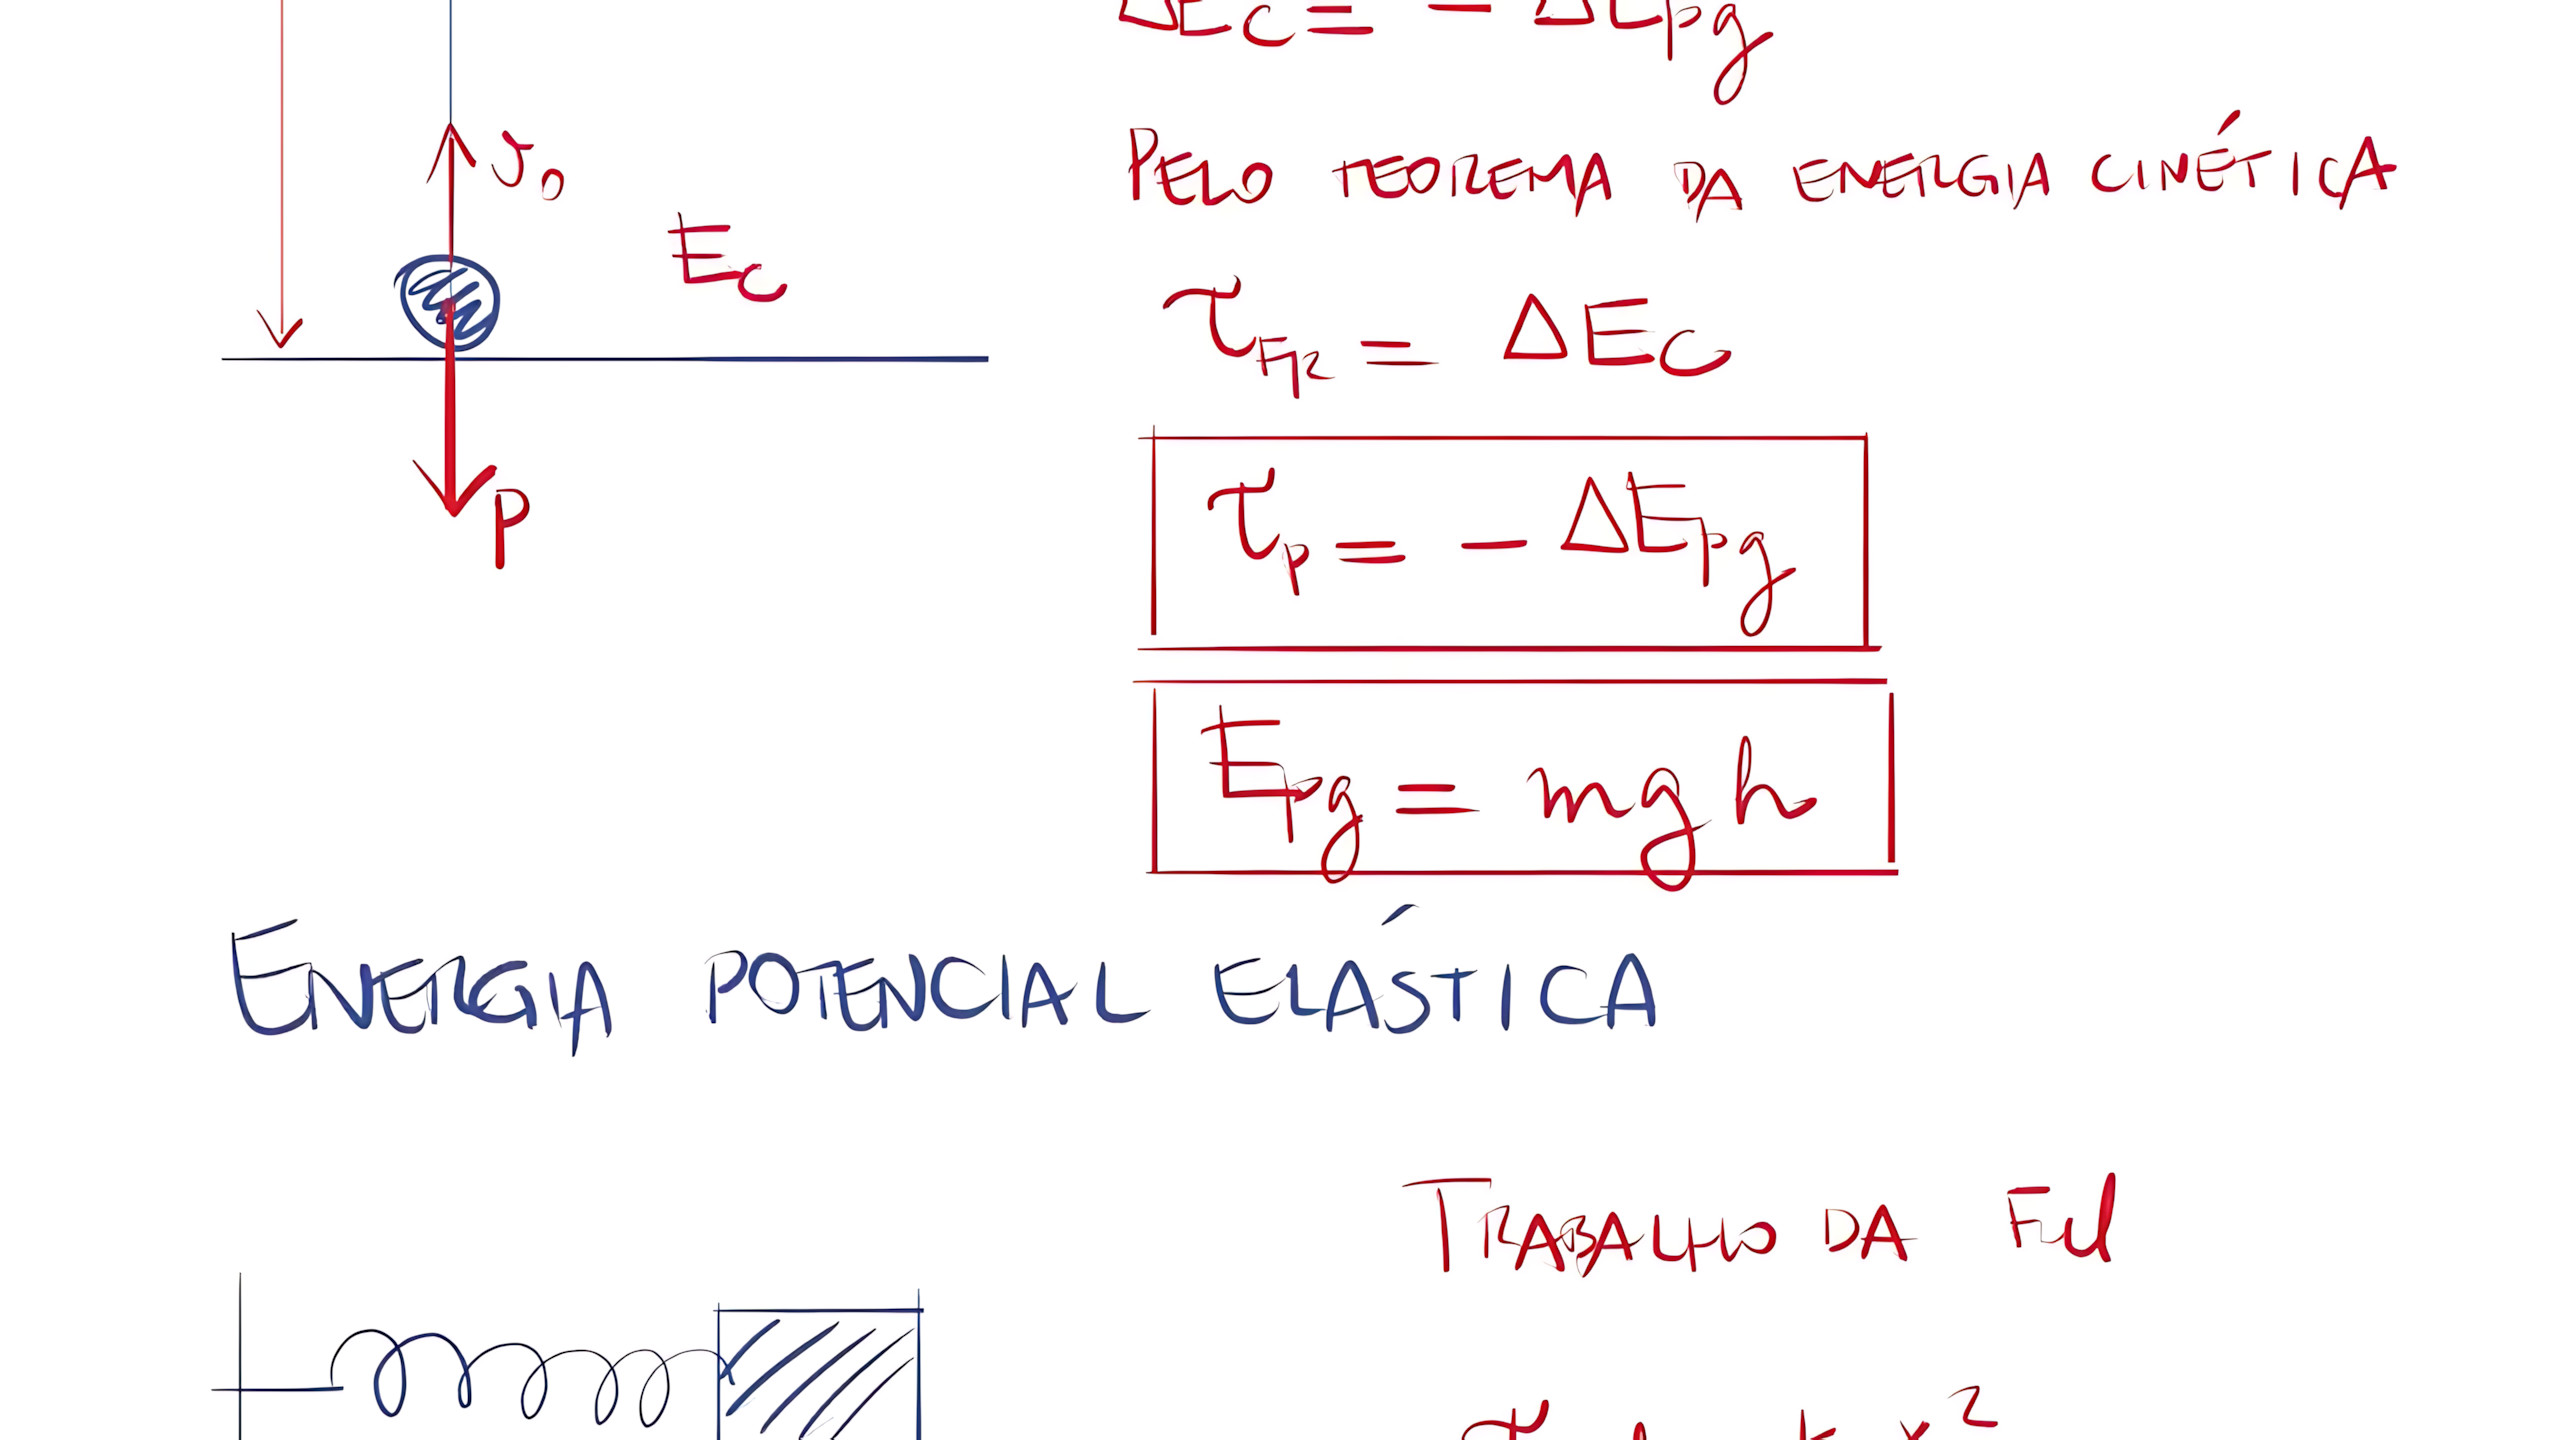 ΔEc = - ΔEpg
PELO TEOREMA DA ENERGIA CINÉTICA
v₀
Ec
τ_FR = ΔEc
P
τp = - ΔEpg
Epg = mgh
ENERGIA POTENCIAL ELÁSTICA
TRABALHO DA Fel